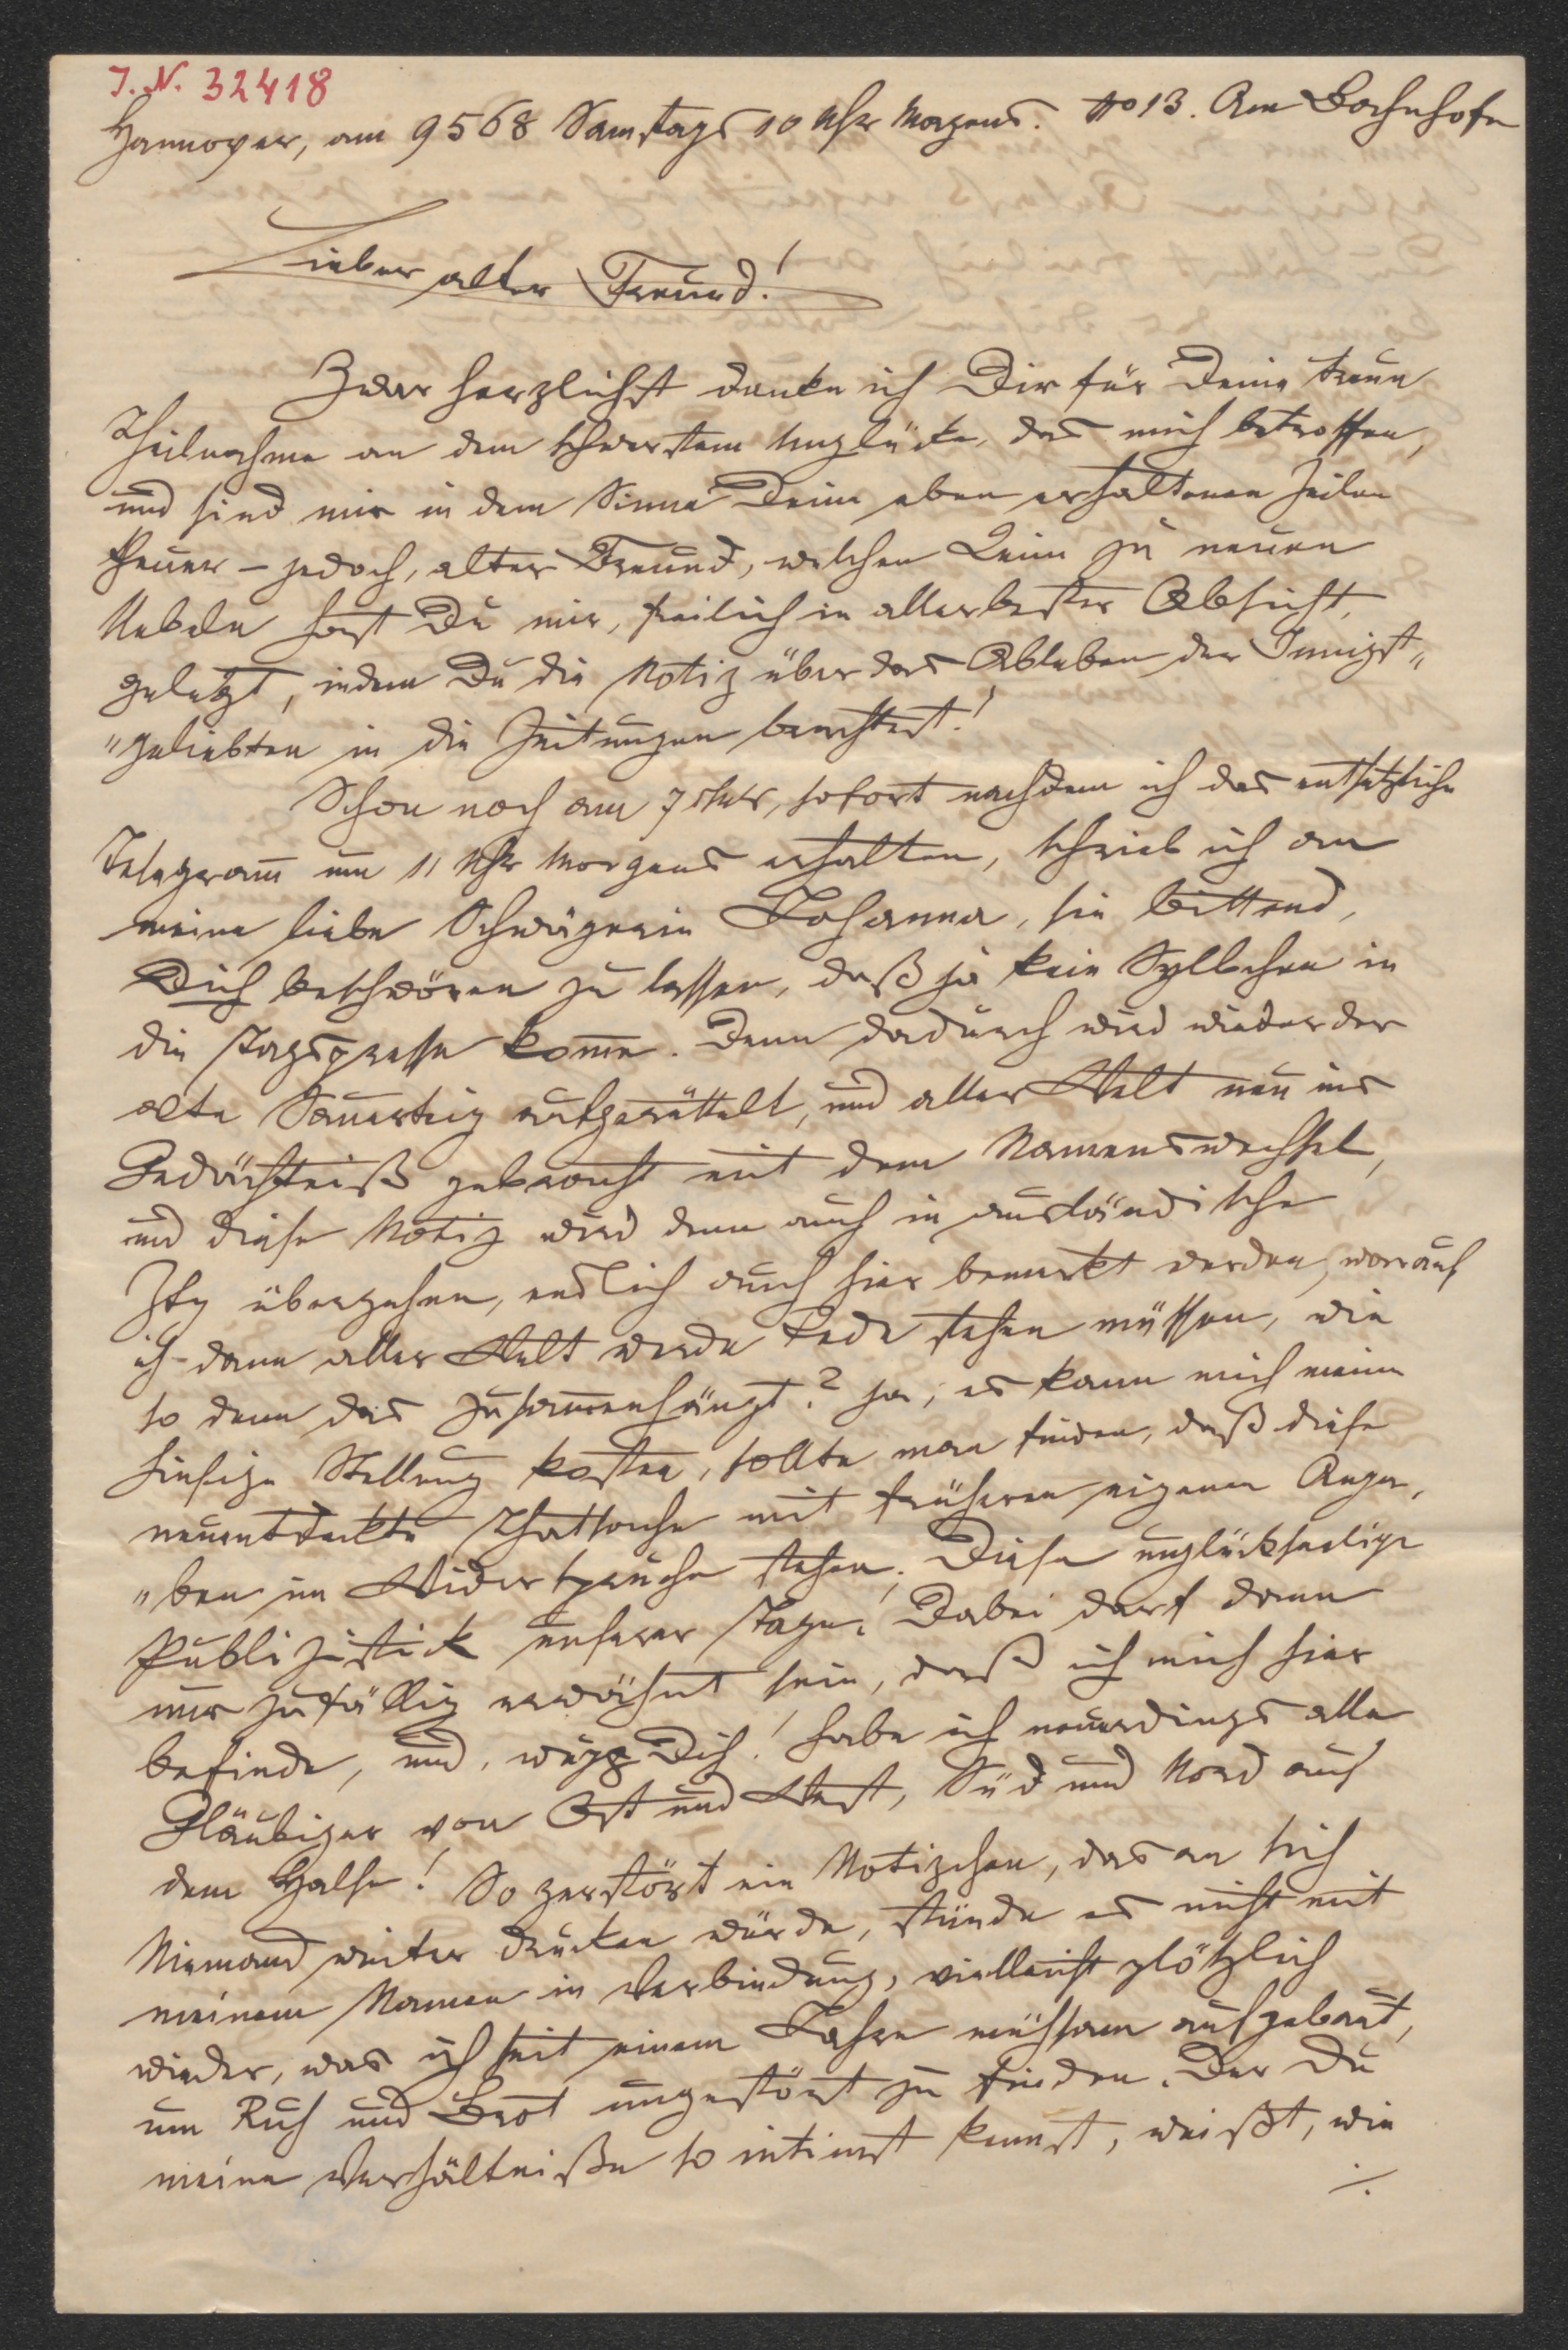 J. N. 32418
Hannover, am 9568 Samstags 10 Uhr Morgens. No 13. Am Bahnhofe
Lieber alter Freund!
Zwar herzlichst danke ich Dir für Deine treue
Theilnahme an dem schwerstem Unglücke, das mich betroffen,
und sind mir in dem Sinne Deine eben erhaltenen Zeilen
theuer – jedoch, alter Freund, welchen Keim zu neuen
Uebeln hast Du mir, freilich in allerbester Absicht,
gelegt, indem Du die Notiz über das Ableben der Innigst„
„geliebten in die Zeitungen brachtest!
Schon noch am 7, sofort nachdem ich das entsetzliche
Telegram̅ um 11 Uhr Morgens erhalten, schrieb ich an
meine liebe Schwägerin Johanna, sie bittend,
Dich beschwören zu lassen, daß ja kein Sylbchen in
die Tagspresse kom̅e. Denn dadurch wird wieder der
alte Sauerteig aufgerüttelt, und aller Welt neu ins
Gedächtniß gebracht mit dem Namenswechsel,
und diese Notiz wird dann auch in ausländische
Ztg übergehen, endlich auch hier bemerkt werden, worauf
ich dann aller Welt werde Rede stehen müssen, wie
so denn das zusam̅enhängt? ja, es kann mich meine
hiesige Stellung kosten, sollte man finden, daß diese
neuentdeckte Thatsache mit früheren eigenen Anga„
„ben im Widerspruche stehen. Diese unglückseelige
Publizistick unserer Tage! Dabei darf dann
nur zufällig erwähnt sein, daß ich mich hier
befinde, und, Dich! habe ich neuerdings alle
Gläubiger von Ost und West, Süd und Nord auf
dem Halse! So zerstört ein Notizchen, das an sich
Niemand weiter drucken würde, stünde es nicht mit
meinem Namen in Verbindung, vielleicht plötzlich
wieder, was ich seit einem Jahre mühsam aufgebaut,
um Ruh und Brot ungestört zu finden. Der Du
meine Verhältniße so intimst kennst, weißt, wie
./.